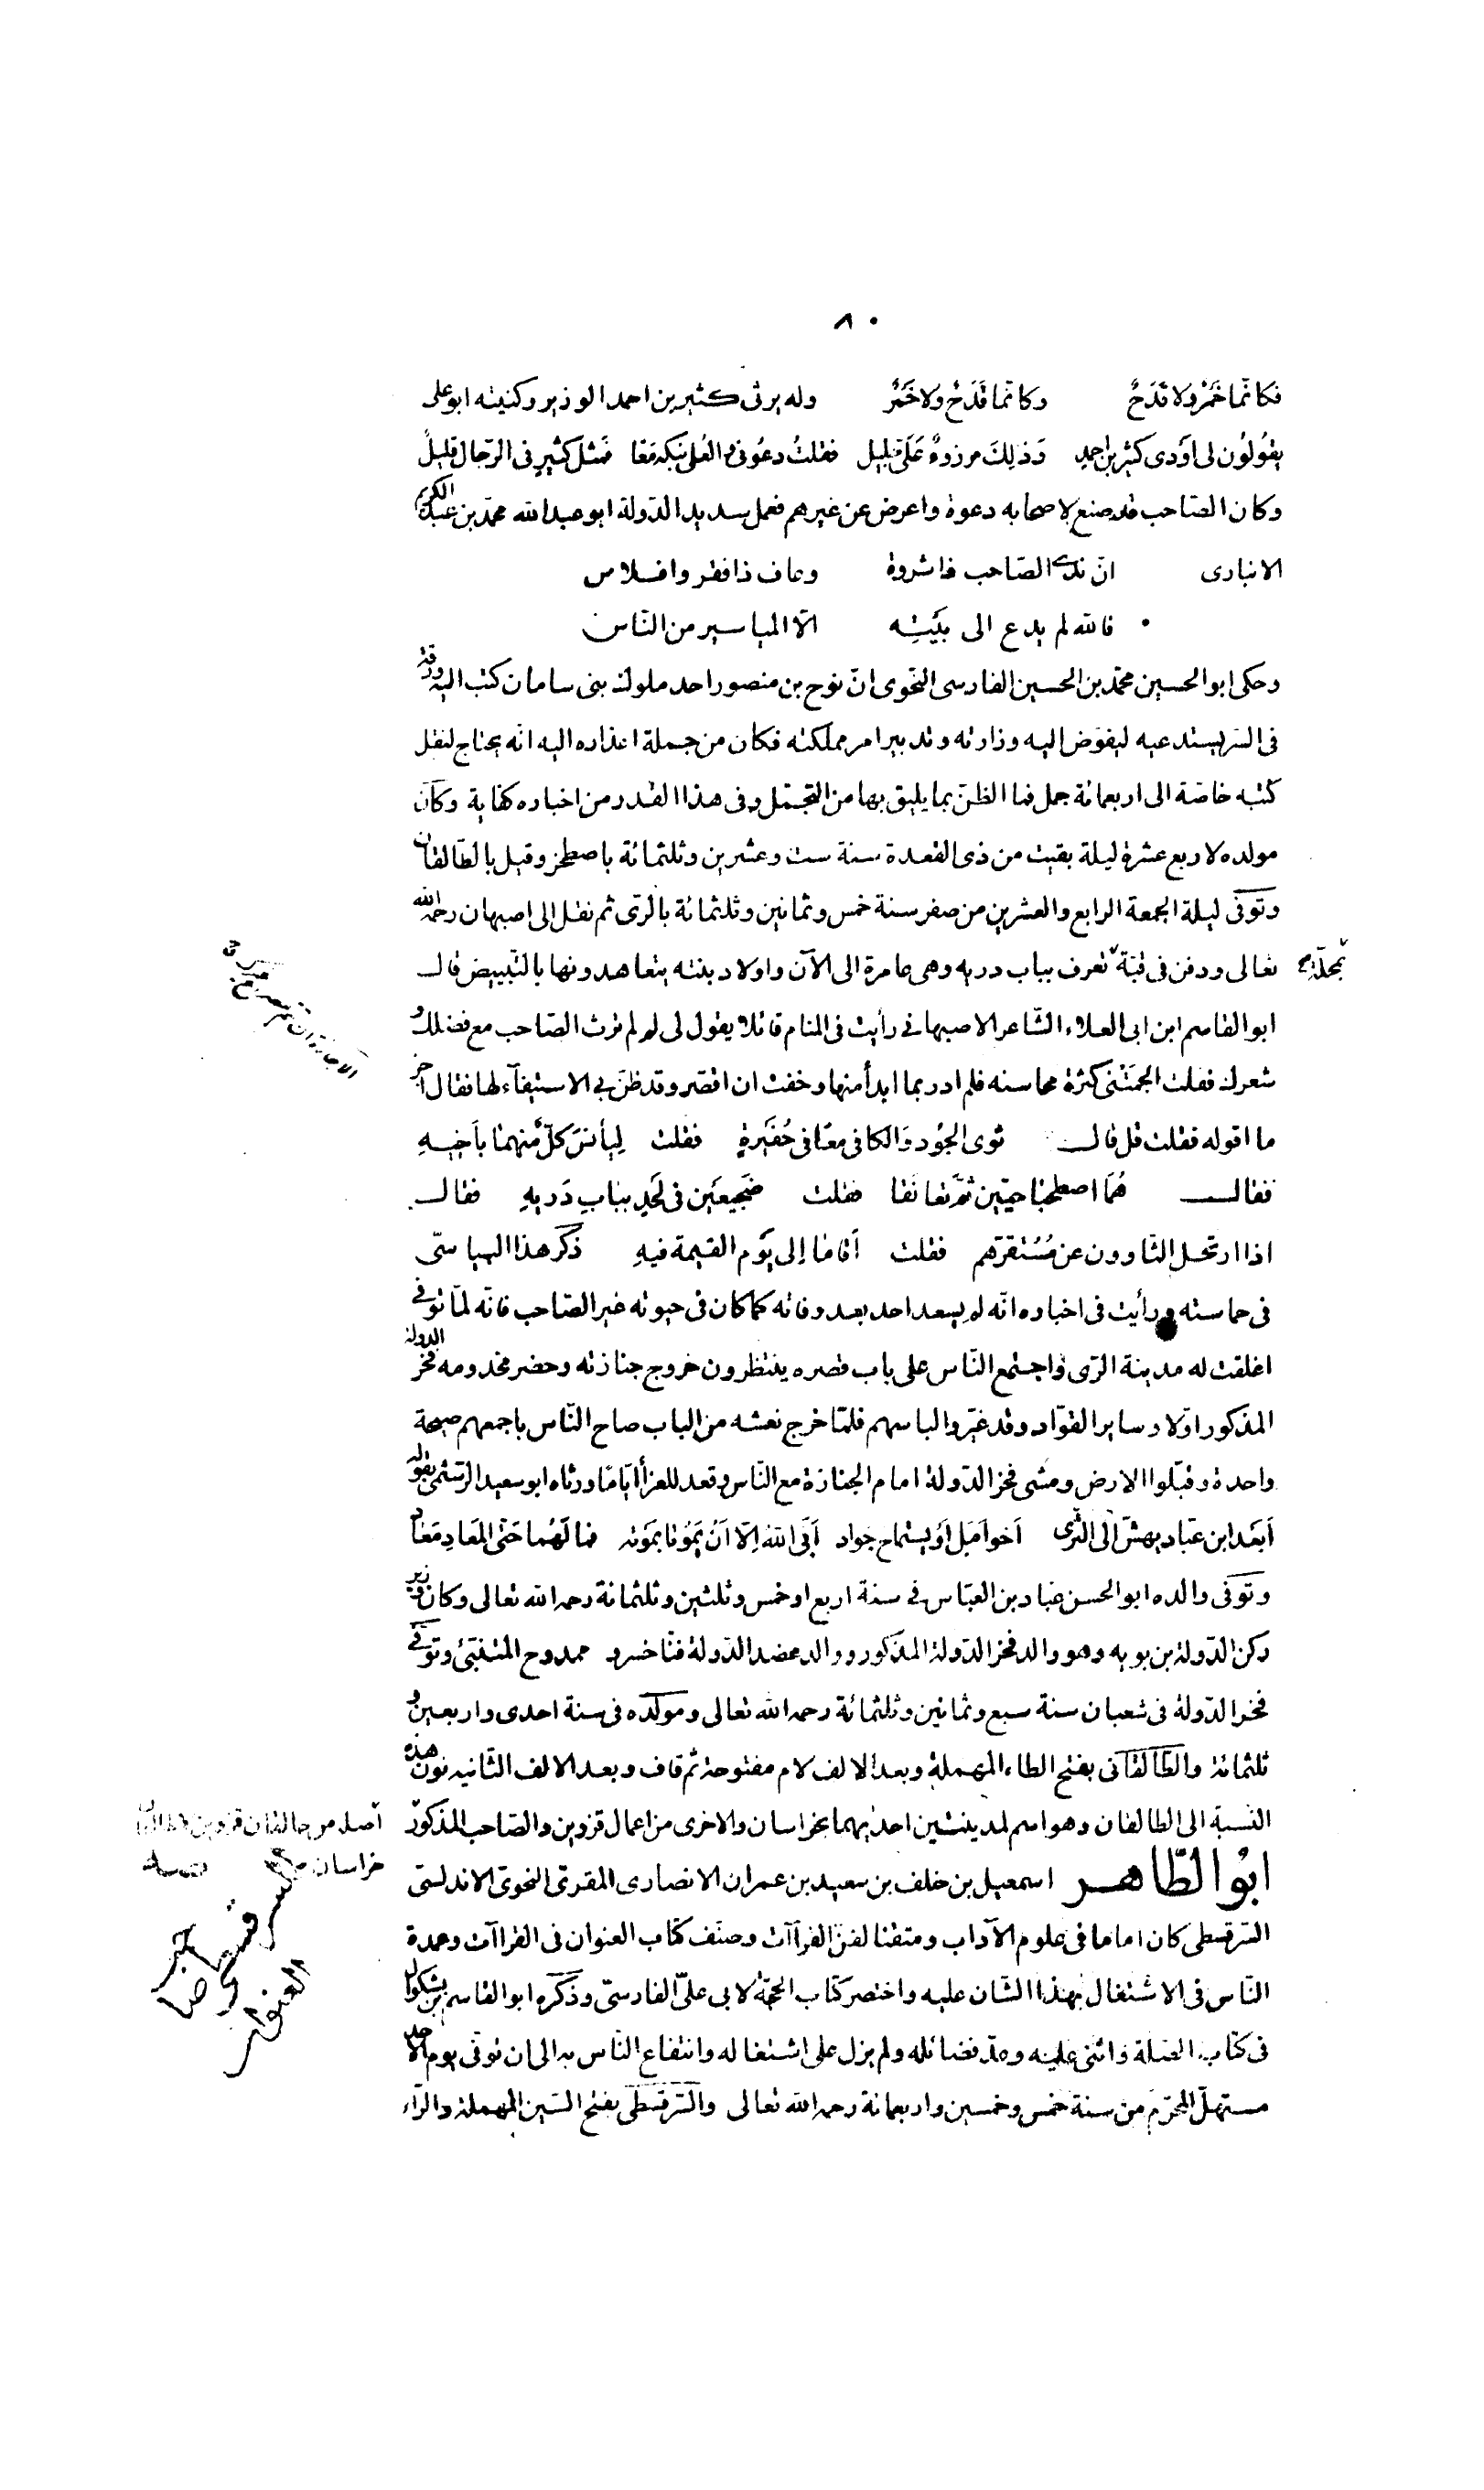 ٨٠
فكانّما خَمْرٌ ولا قَدَحٌ وكانّما قَدَحٌ ولا خَمْرُ وله يرثى كثير بن احمد الوزير وكنيته ابو على
يقُولُون لى اَودى كثير بن احمد وَذلِكَ مرزوءٌ عَلَىّ جليل فقلتُ دعُونى والعُلى نبكهِ مَعًا فمثل كثيرٍ فى الرّجال قليلُ
وكان الصّاحب قد صنع لاصحابه دعوة واعرض عن غيرهم فعمل سديد الدّولة ابو عبد الله محمّد بن عبد الكريم
الانبارى انّ ندى الصّاحب ذا ثروة وعاف ذا فقر وافلاس
فالله لم يدع الى بَيْتِه الّا المياسير من النّاس
وحكى ابو الحسين محمّد بن الحسين الفارسى النّحوى انّ نوح بن منصور احد ملوك بنى سامان كتب اليه ورقة
فى السّر يستدعيه ليفوّض اليه وزارته وتدبير امر مملكته فكان من جملة اعذاره اليه انّه يحتاج لنقل
كتبه خاصّة الى اربعمائة جمل فما الظنّ بما يليق بها من التجمّل وفى هذا القدر من اخباره كفاية وكان
مولده لاربع عشرة ليلة بقيت من ذى القعدة سنة ست وعشرين وثلثمائة باصطخر وقيل بالطّالقان
وتوفّى ليلة الجمعة الرابع والعشرين من صفر سنة خمس وثمانين وثلثمائة بالرّى ثم نقل الى اصبهان رحمه الله
تعالى ودفن فى قبّة تعرف بباب دريه وهى عامرة الى الآن واولاد بنته يتعاهدونها بالتّبييض قال
بمحلّة
ابو القاسم ابن ابى العلاء الشّاعر الاصبهانى رأيت فى المنام قائلا يقول لى لم لم ترث الصّاحب مع فضلك و
شعرك فقلت الجمَتْنى كثرة محاسنه فلم ادر بما ابدأ منها وخفت ان اقصّر وقد ظنّ بى الاستيفآء لها فقال اجز
ما اقوله فقلت قل قال ثوى الجُود وَالكافى معًا فى حُفَيْرةٍ فقلت لِيأنسَ كلّ مّنهما بأَخِيهِ
فقال هُمَا اصطحبا حيّين ثمّ تعانقا فقلت ضَجيعَين فى لَحدٍ ببابِ دَريهِ فقال
اذا ارتحل الثّاوون عن مُسْتقرّهم فقلت أقاما إلى يَوم القيمة فيهِ ذكر هذا البياسىّ
فى حماسته ورأيت فى اخباره انّه لم يسعد احد بعد وفاته كما كان فى حيوته غير الصّاحب فانّه لمّا توفى
اغلقت له مدينة الرّى واجتمع النّاس على باب قصره ينتظرون خروج جنازته وحضر مخدومه فخر الدولة
المذكور اوّلا وساير القوّاد وقد غيّروا لباسهم فلمّا خرج نعشه من الباب صاح النّاس باجمعهم صيحة
واحدة وقبّلوا الارض ومشى فخر الدّولة امام الجنازة مع النّاس وقعد للعزأ ايّامًا ورثاه ابو سعيد الرّستمى بقوله
أبَعد ابن عبّاد يهشّ الى السُّرى اَخو اَمَل اَو يستماح جواد اَبَى الله إلّا اَنْ يَمُوتا بمَوته فما لَهُما حَتّى المعَادِ مَعَاد
وتوفّى والده ابو الحسن عبّاد بن العبّاس فى سنة اربع او خمس وثلثين وثلثمائة رحمه الله تعالى وكان وزير
ركن الدّولة بن بويه وهو والد فخر الدّولة المذكور ووالد عضد الدّولة فنّا خسرو ممدوح المتنبّئ وتوفّى
فخر الدّولة فى شعبان سنة سبع وثمانين وثلثمائة رحمه الله تعالى ومولده فى سنة احدى واربعين و
ثلثمائة والطّالقانى بفتح الطاء المهملة وبعد الالف لام مفتوحة ثم قاف وبعد الالف الثّانيه نون هذه
النّسبة الى الطالقان وهو اسم لمدينتين احدٰيهما بخراسان والاخرى من اعمال قزوين والصّاحب المذكور
اصله من طالقان قزوين لا طالقان
خراسان
ابُو الطّاهر اسمعيل بن خلف بن سعيد بن عمران الانصارى المقرىّ النحوىّ الاندلسىّ
السّرقسطى كان اماما فى علوم الآداب ومتقنا لفنّ القرآآت وصنّف كتاب العنوان فى القراآت وعمدة
النّاس فى الاشتغال بهذا الشّان عليه واختصر كتاب الحجّة لابى علىّ الفارسىّ وذكره ابو القاسم بن بشكوال
فى كتاب الصّلة واثنى عليه وعدّ فضائله ولم يزل على اشتغاله وانتفاع النّاس به الى ان توفّى يوم الاحد
مستهلّ المحرّم من سنة خمس وخمسين واربعمائة رحمه الله تعالى والسّرقسطى بفتح السّين المهملة والرّاء
السرقسطى صاحب
العنوان